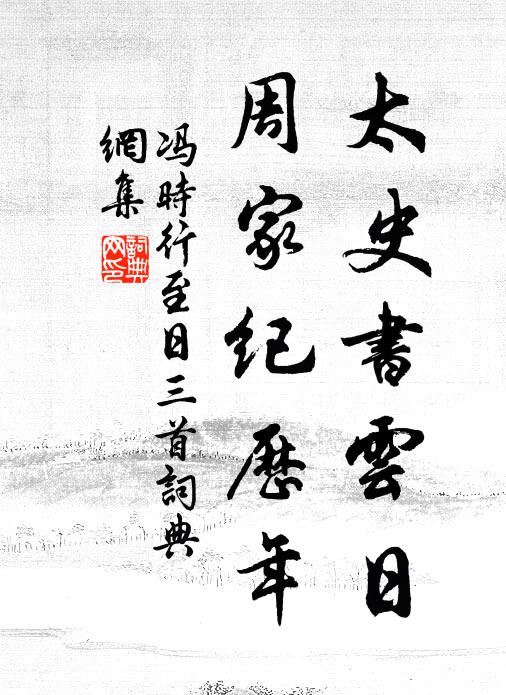 太史書雲日
周家纪歷年
冯時行至日三首詞典
網集
詞典网印